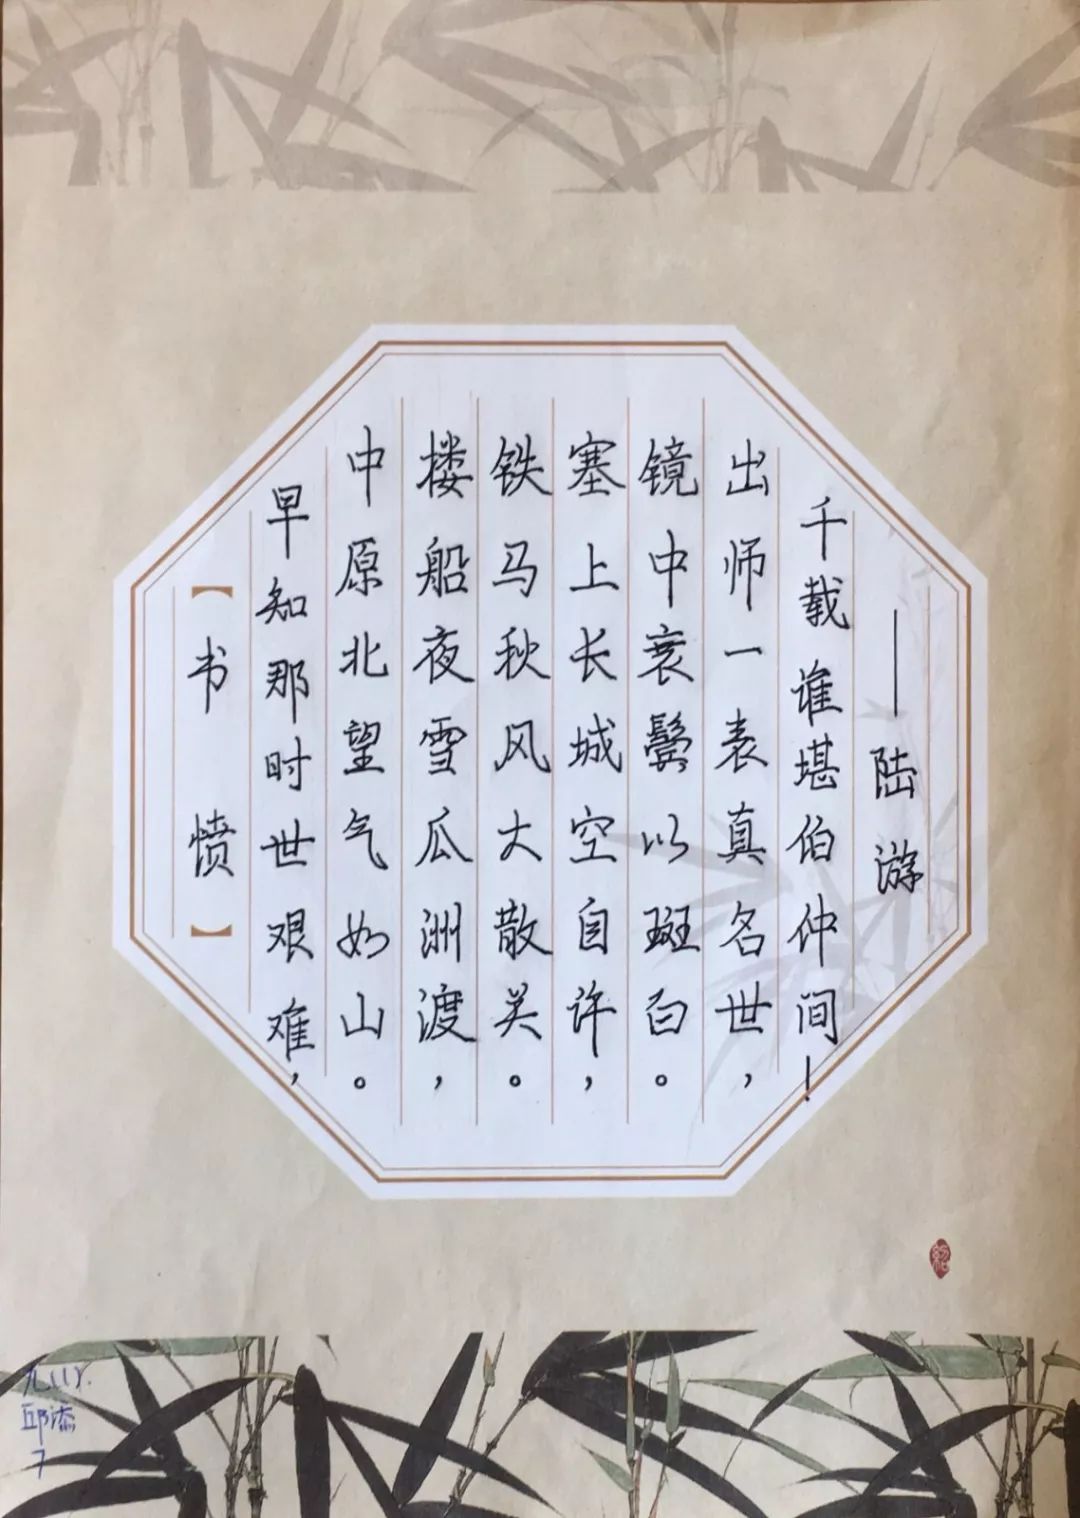 【书愤】
早知那时世艰难，
中原北望气如山。
楼船夜雪瓜洲渡，
铁马秋风大散关。
塞上长城空自许，
镜中衰鬓以斑白。
出师一表真名世，
千载谁堪伯仲间！
——陆游
7